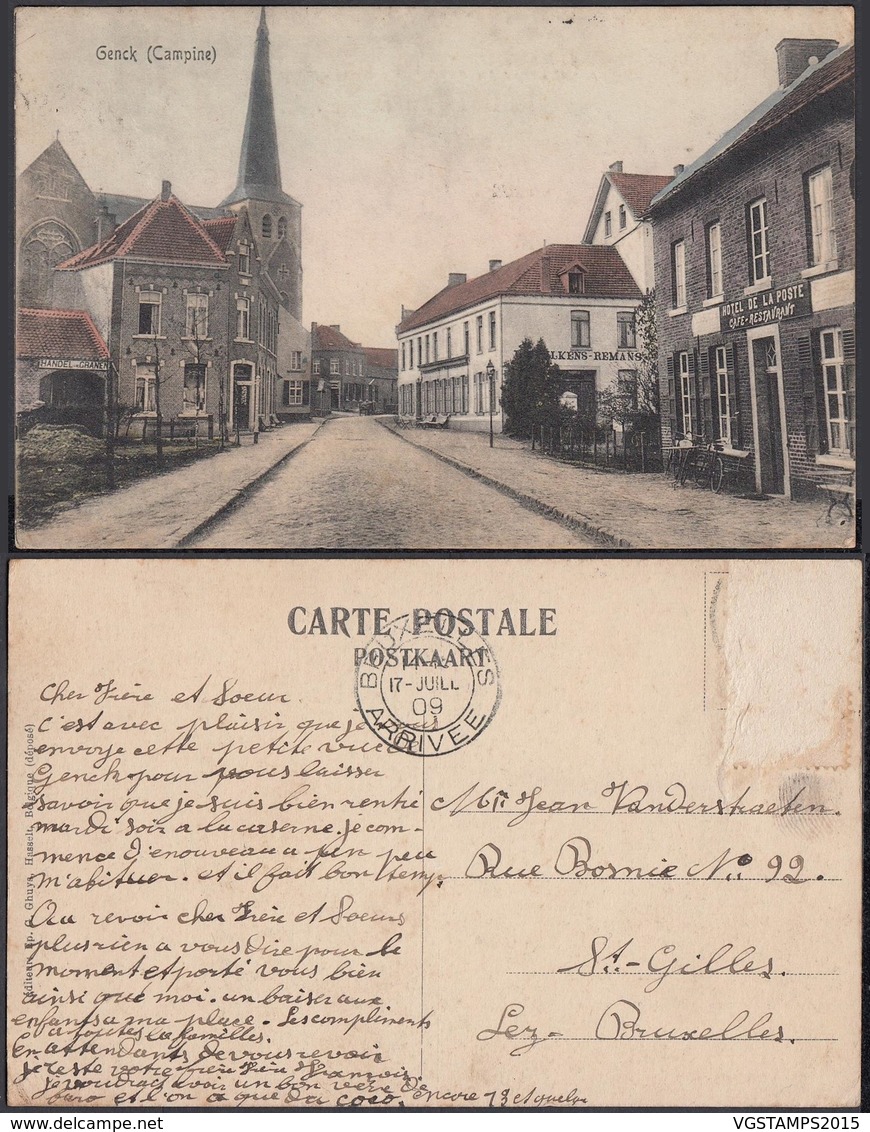 Genck (Campine)
HANDEL in GRANEN
LKENS-REMANS
HOTEL DE LA POSTE
CAFE-RESTAURANT
CARTE POSTALE
POSTKAART
BRUXELLES
17-JUIL
09
ARRIVÉE
Editeurs Ep. G. Ghuys, Hasselt, Belgique (déposé)
Cher Frère et Soeur
C'est avec plaisir que je vous
envoye cette petite vue
Genck pour vous laisser
savoir que je suis bien rentré
mardi soir a la caserne. je com-
mence d'enouveau a un peu
m'abituer. et il fait bon temp.
Au revoir cher Frère et Soeur
plus rien a vous dire pour le
moment et porté vous bien
ainsi que moi. un baiser aux
enfants a ma place. Les compliments
a toutes la familles.
En attendants de vous revoir
je reste votre Frère
je voudrais avoir un bon vere de
et l'on a que du coco. encore 73 et quelq
Mr. Jean Vanderstraeten.
Rue Bosnie No. 92.
St-Gilles.
Lez-Bruxelles.
VGSTAMPS2015